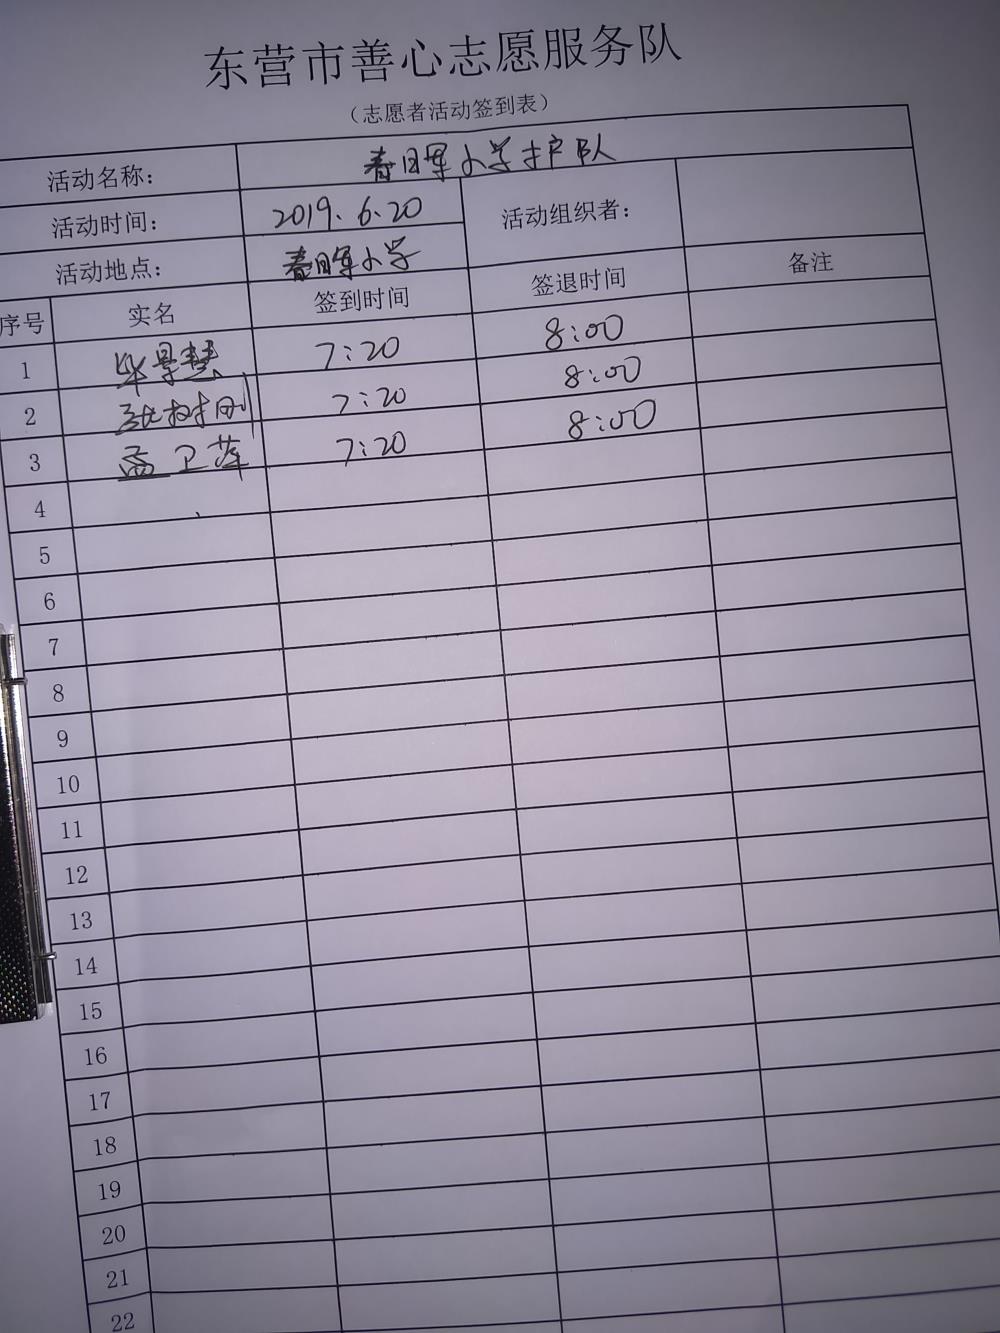 东营市善心志愿服务队
（志愿者活动签到表）
活动名称： 春晖小学护队
活动时间： 2019.6.20 活动组织者：
活动地点： 春晖小学
序号 实名 签到时间 签退时间 备注
1 毕景慧 7:20 8:00
2 张树刚 7:20 8:00
3 卫萍 7:20 8:00
4
5
6
7
8
9
10
11
12
13
14
15
16
17
18
19
20
21
22